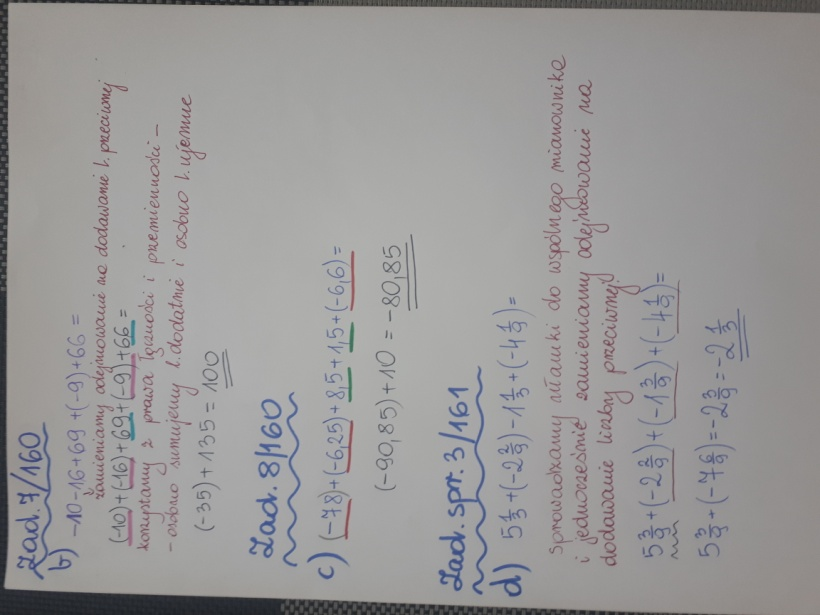 Zad. 7/160
b) -10-16+69+(-9)+66 =
Zamieniamy odejmowanie na dodawanie l. przeciwnej
(-10)+(-16)+69+(-9)+66 =
korzystamy z prawa łączności i przemienności -
- osobno sumujemy l. dodatnie i osobno l. ujemne
(-35)+135 = 100
Zad. 8/160
c) (-78)+(-6,25)+8,5+1,5+(-6,6) =
(-90,85)+10 = -80,85
Zad. spr. 3/161
d) 5 1/3 + (-2 2/9) - 1 1/3 + (-4 1/9) =
Sprowadzamy ułamki do wspólnego mianownika
i jednocześnie zamieniamy odejmowanie na
dodawanie liczby przeciwnej!
5 3/9 + (-2 2/9) + (-1 3/9) + (-4 1/9) =
5 3/9 + (-7 6/9) = -2 3/9 = -2 1/3